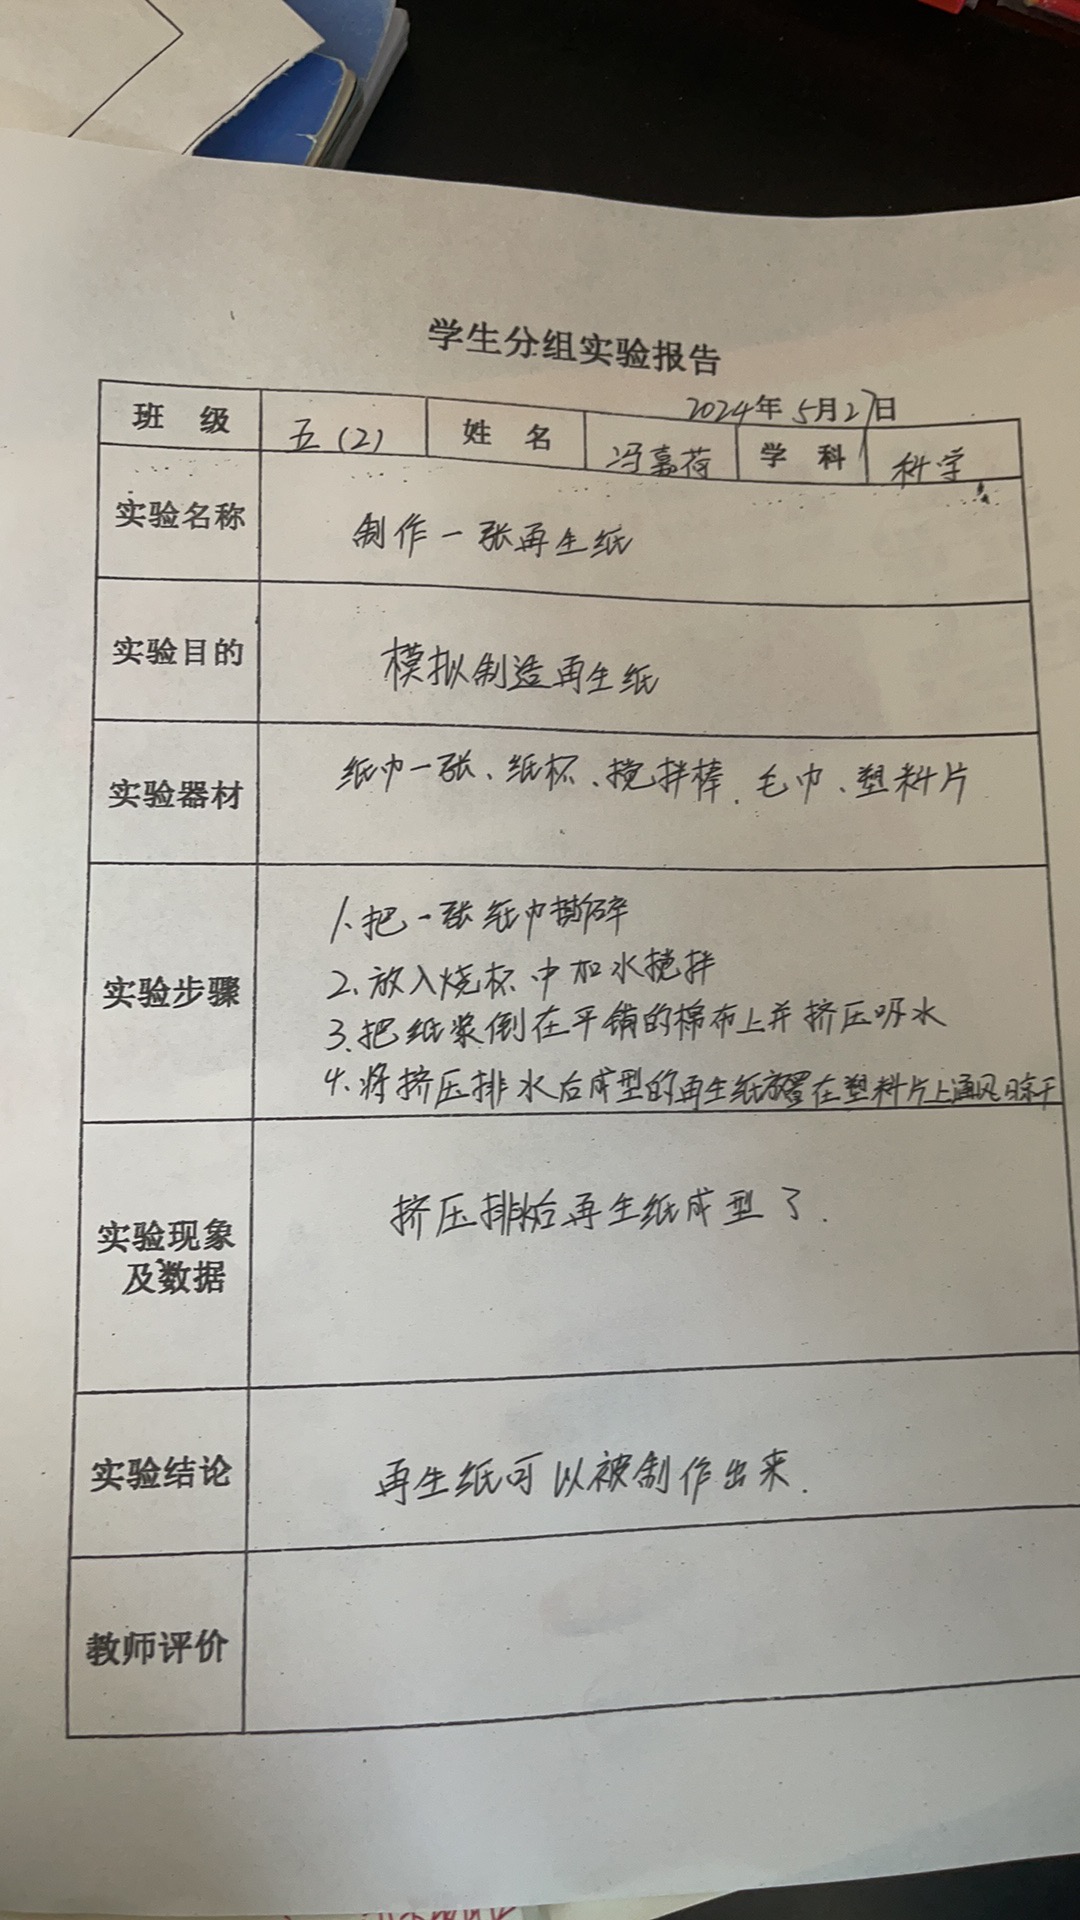 学生分组实验报告
2024年5月27日
班 级 五(2) 姓 名 冯嘉荷 学 科 科学
实验名称 制作一张再生纸
实验目的 模拟制造再生纸
实验器材 纸巾一张、纸杯、搅拌棒、毛巾、塑料片
实验步骤
1.把一张纸巾撕碎
2.放入烧杯中加水搅拌
3.把纸浆倒在平铺的棉布上并挤压吸水
4.将挤压排水后成型的再生纸放置在塑料片上通风晾干
实验现象
及数据
挤压排水后再生纸成型了.
实验结论 再生纸可以被制作出来.
教师评价